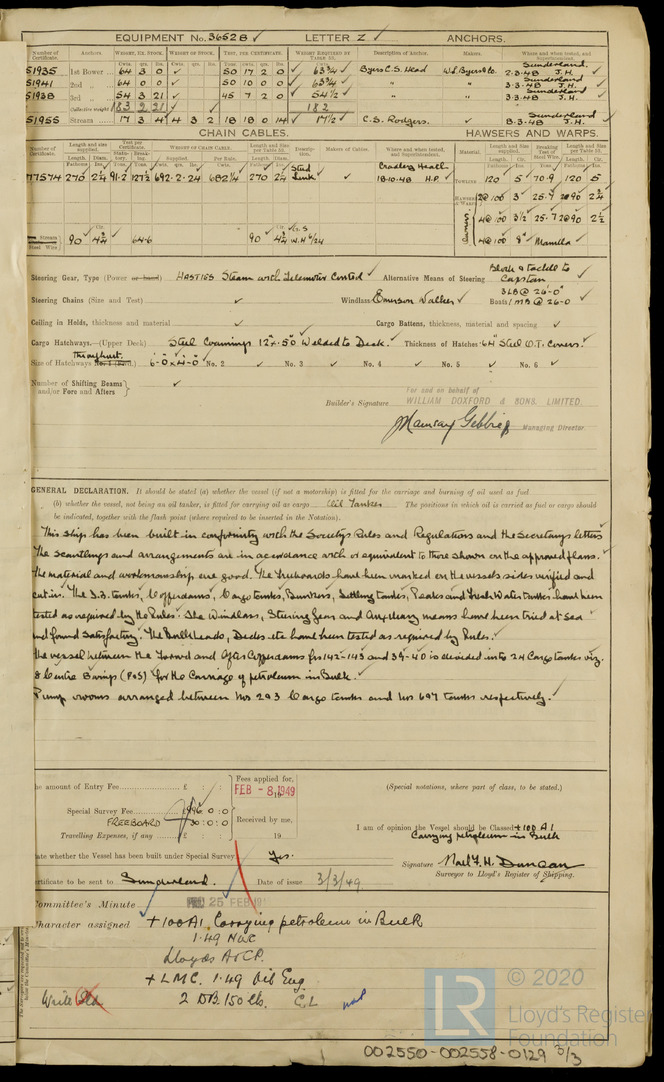 EQUIPMENT No. 36528 ✓ LETTER Z ✓ ANCHORS.
Number of Certificate. Anchors. WEIGHT, EX. STOCK. WEIGHT OF STOCK. TEST, PER CERTIFICATE. WEIGHT REQUIRED BY TABLE 53. Description of Anchor. Makers. Where and when tested, and Superintendent.
51935 1st Bower 64 3 0 ✓ 50 17 2 0 ✓ 63¾ ✓ Byers C.S. Head W.L. Byers & Co. Sunderland. 2.3.48 J.H. ✓
51941 2nd 64 0 0 ✓ 50 10 0 0 ✓ 63¾ ✓ " " Sunderland 3.3.48 J.H.
51938 3rd 54 3 21 ✓ 45 7 2 0 54½ ✓ " " Sunderland 3.3.48 J.H.
Collective weight 183 2 21 ✓ 182
51955 Stream 17 3 4 ✓ 4 3 2 18 18 0 14 ✓ 17½ ✓ C.S. Rodgers. ✓ Sunderland 8.3.48 J.H. ✓
CHAIN CABLES. HAWSERS AND WARPS.
Number of Certificate. Length and size supplied. Test per Certificate WEIGHT OF CHAIN CABLE. Length and size per Table 53. Description. Makers of Cables. Where and when tested, and Superintendent. Material. Length and size supplied. Breaking Test of Steel Wire. Length and size per Table 53.
77574 270 2¼ 91·2 127½ 692·2·24 682¼ 270 2¼ Stud Link ✓ Cradley Heath 18·10·48 H.P. ✓ TOWLINE 120 5 70·9 120 5
HAWSERS & WARPS 2@100 3 25·7 2@90 2¾
4@100 3½ 25·7 2@90 2½
90 4¾ 64·6 90 4¾ 4@100 8" Manilla
Steering Gear, Type (Power or hand) HASTIES Steam with Telemotor Control ✓ Alternative Means of Steering Block & tackle to Capstan
Steering Chains (Size and Test) ✓ Windlass Emerson Walker ✓ Boats 3 LB @ 26'-0" 1 MB @ 26-0 ✓
Ceiling in Holds, thickness and material ✓ Cargo Battens, thickness, material and spacing ✓
Cargo Hatchways.—(Upper Deck) Steel Coamings 12" x ·50 Welded to Deck. ✓ Thickness of Hatches ·64 Steel W.T. Covers. ✓
Size of Hatchways throughout. No. 1 6'-0" x 4'-0" ✓ No. 2 ✓ No. 3 ✓ No. 4 ✓ No. 5 ✓ No. 6 ✓
Number of Shifting Beams and/or Fore and Afters ✓
For and on behalf of
WILLIAM DOXFORD & SONS. LIMITED.
Builder's Signature Ramsay Gebbie Managing Director
GENERAL DECLARATION. It should be stated (a) whether the vessel (if not a motorship) is fitted for the carriage and burning of oil used as fuel
(b) whether the vessel, not being an oil tanker, is fitted for carrying oil as cargo Oil Tanker The positions in which oil is carried as fuel or cargo should
be indicated, together with the flash point (where required to be inserted in the Notation).
This ship has been built in conformity with the Society's Rules and Regulations and the Secretary's letters
The scantlings and arrangements are in accordance with or equivalent to those shown on the approved plans. ✓
The material and workmanship are good. The freeboards have been marked on the vessel's sides verified and
cut in. The D.B. tanks, Cofferdams, Cargo tanks, Bunkers, Settling tanks, Peaks and Fresh Water tanks have been
tested as required by the Rules. The Windlass, Steering Gear and Auxiliary means have been tried at sea
and found satisfactory. The Bulkheads, Decks etc have been tested as required by Rules. ✓
The vessel between the Forward and After Cofferdams frs 142-143 and 39-40 is divided into 24 Cargo tanks viz.
8 Centre 8 wings (P&S) for the Carriage of petroleum in Bulk. ✓
Pump rooms arranged between Nos 2&3 Cargo tanks and Nos 6&7 tanks respectively. ✓
The amount of Entry Fee £ : : Fees applied for, FEB - 8 1949 (Special notations, where part of class, to be stated.)
Special Survey Fee £ 0 : 0 Received by me,
FREEBOARD 30 : 0 : 0 I am of opinion the Vessel should be Classed +100 A1
Travelling Expenses, if any £ : : 19 Carrying petroleum in Bulk
State whether the Vessel has been built under Special Survey Yes. Signature Noel F. H. Duncan
Surveyor to Lloyd's Register of Shipping.
Certificate to be sent to Sunderland. Date of issue 3/3/49
Committee's Minute 25 FEB 19
Character assigned +100A1 Carrying petroleum in Bulk
1·49 Nwc
Lloyds A&CP.
+LMC. 1·49 Oil Eng
Write 2 DB. 150 lb. C.L
© 2020
LR Lloyd's Register Foundation
002550-002558-0129 3/3